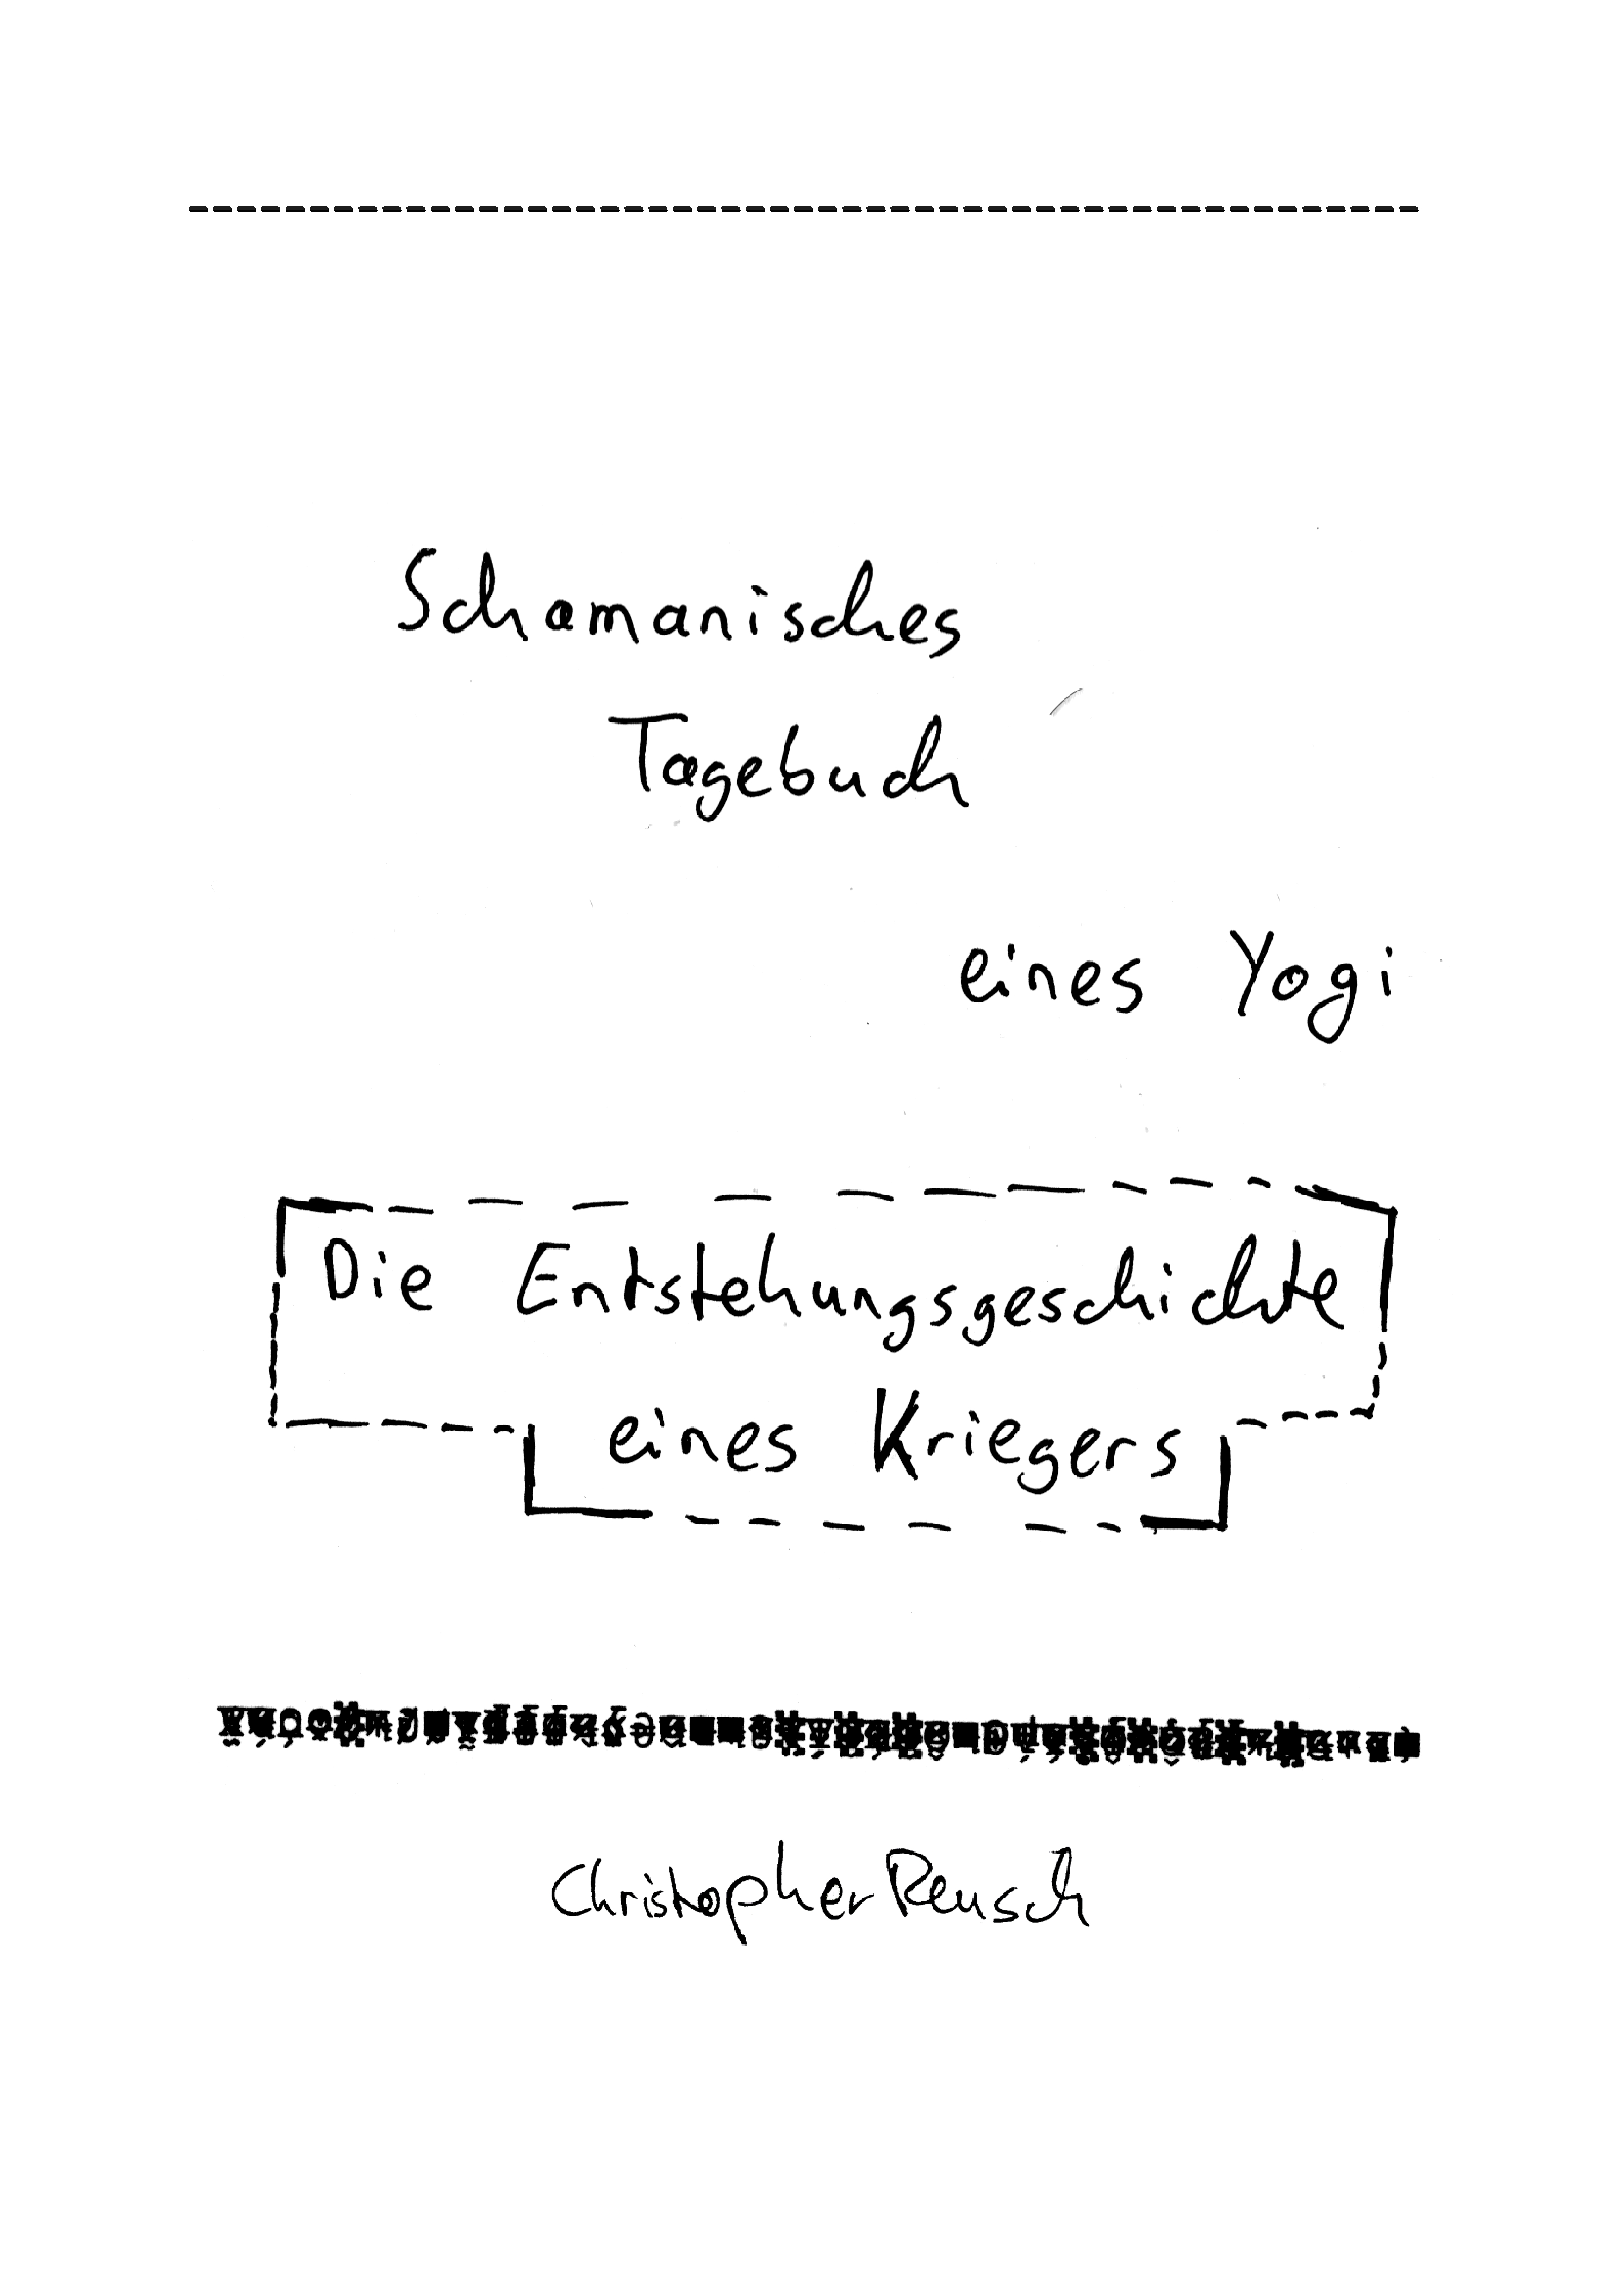 Schamanisches
Tagebuch
eines Yogi
Die Entstehungsgeschichte
eines Kriegers
Christopher Reusch